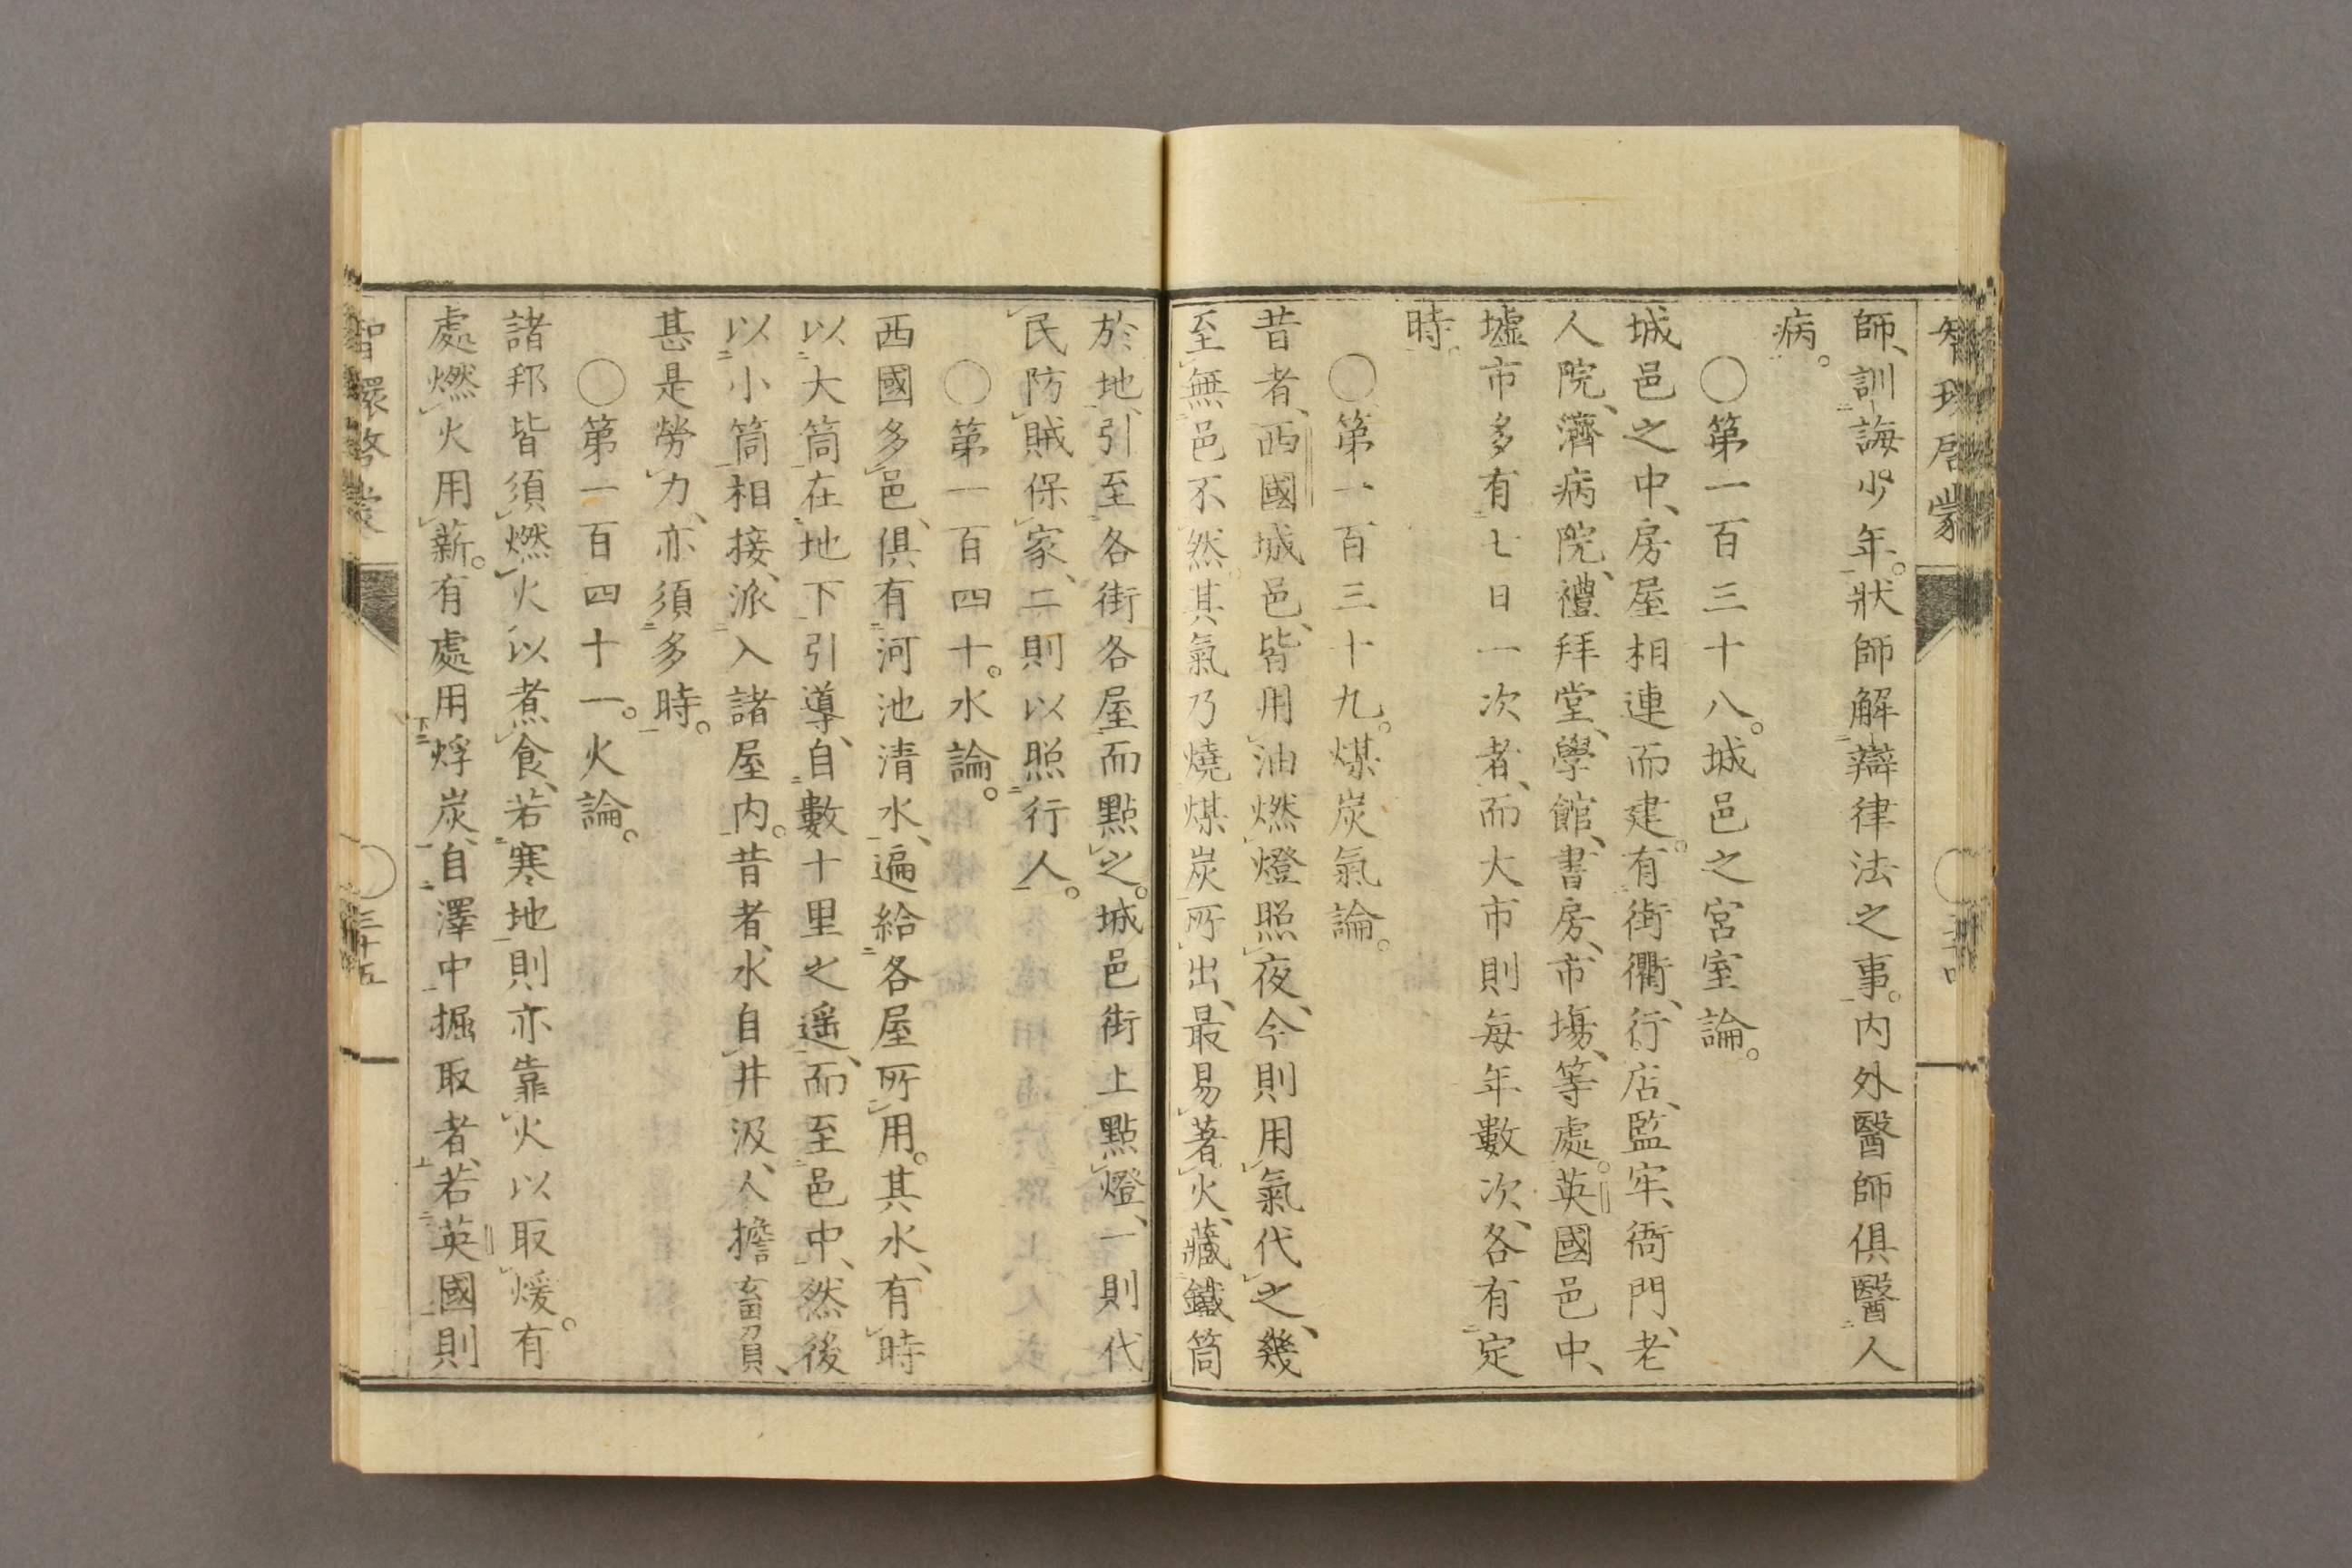 智環啓蒙
師、訓誨少年。狀師解辯律法之事。内外醫師俱醫人
病。
○第一百三十八。城邑之宮室論。
城邑之中、房屋相連而建。有街衢、行店、監牢、衙門、老
人院、濟病院、禮拜堂、學館、書房、市塲、等處。英國邑中、
墟市多有七日一次者、而大市則每年數次、各有定
時。
○第一百三十九。煤炭氣論。
昔者、西國城邑、皆用油燃燈照夜、今則用氣代之、幾
至無邑不然。其氣乃燒煤炭所出、最易著火、藏鐵筒
於地、引至各街各屋而點之。城邑街上點燈、一則代
民防賊保家、二則以照行人。
○第一百四十。水論。
西國多邑、俱有河池清水、遍給各屋所用。其水、有時
以大筒在地下引導、自數十里之遥、而至邑中、然後
以小筒相接、派入諸屋内。昔者、水自井汲、人擔畜負、
甚是勞力、亦須多時。
○第一百四十一。火論。
諸邦皆須燃火以煮食、若寒地則亦靠火以取煖。有
處燃火用薪。有處用烰炭、自澤中掘取者、若英國則
智環啓蒙
○三十五